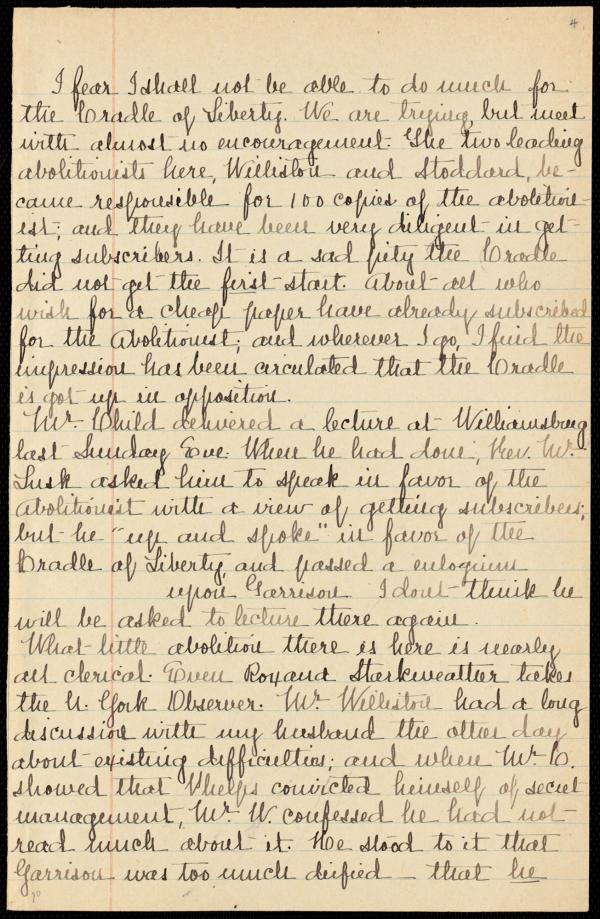 4
I fear I shall not be able to do much for
the Cradle of Liberty. We are trying, but meet
with almost no encouragement. The two leading
abolitionists here, Williston and Stoddard, be-
came responsible for 100 copies of the abolition-
ist; and they have been very diligent in get-
ting subscribers. It is a sad pity the Cradle
did not get the first start. About all who
wish for a cheap paper have already subscribed
for the Abolitionist; and wherever I go, I find the
impression has been circulated that the Cradle
is got up in opposition.
Mr. Child delivered a lecture at Williamsburg
last Sunday Eve. When he had done, Rev. Mr.
Lusk asked him to speak in favor of the
Abolitionist with a view of getting subscribers;
but he "up and spoke" in favor of the
Cradle of Liberty, and passed a eulogium
upon Garrison. I dont think he
will be asked to lecture there again.
What little abolition there is here is nearly
all clerical. Even Roxana Starkweather takes
the N. York Observer. Mr. Williston had a long
discussion with my husband the other day
about existing difficulties; and when Mr. C.
showed that Phelps convicted himself of secret
management, Mr. W. confessed he had not
read much about it. He stood to it that
Garrison was too much deified – that he